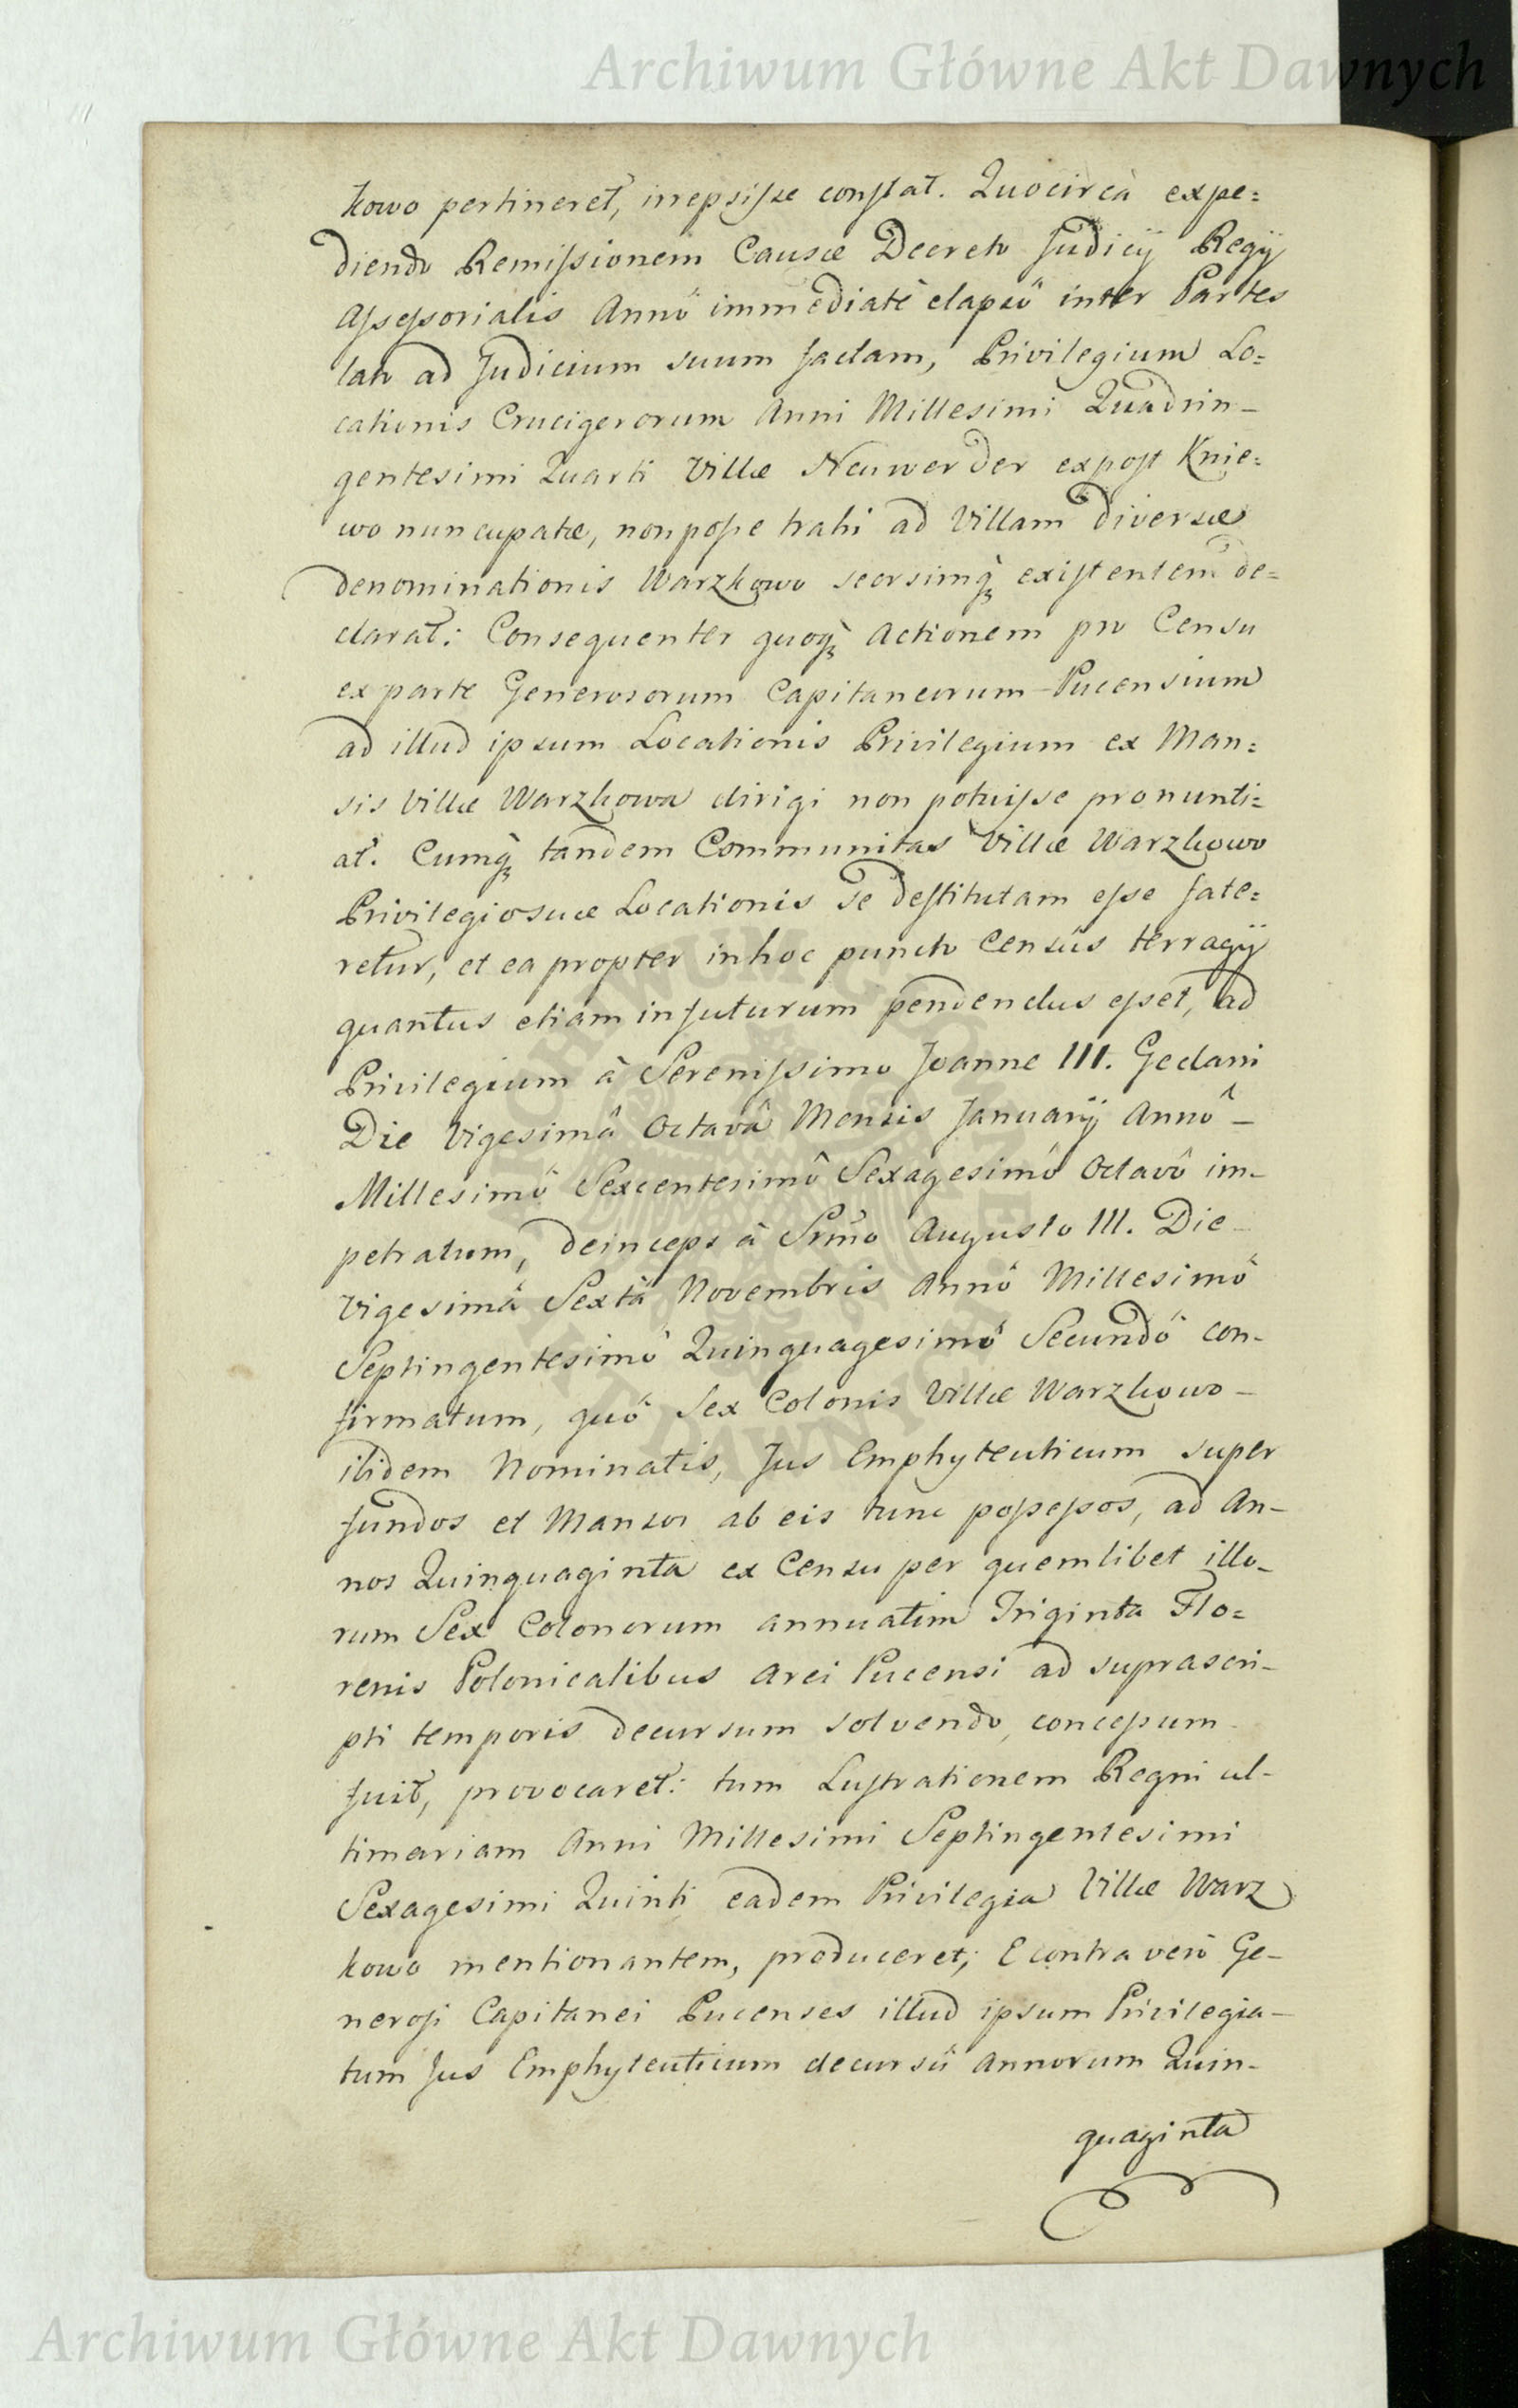 Archiwum Główne Akt Dawnych
kowo pertineret, irrepsiſse conſtat. Quocircà expe=
diendo Remiſsionem Causæ Decreto Judicij Regij
Aſseſsorialis Annô immediatè elapsô inter Partes
lato ad Judicium suum factam, Privilegium Lo=
cationis Crucigerorum Anni Millesimi Quadrin-
gentesimi Quarti Villæ Neuwerder expoſt Knie=
wo nuncupatæ, non poſse trahi ad Villam diversæ
denominationis Warzkowo seorsimq́ꝫ exiſtentem de=
clarat: Consequenter quoq́ꝫ Actionem pro Censu
ex parte Generosorum Capitaneorum Pucensium
ad illud ipsum Locationis Privilegium ex Man=
sis Villæ Warzkowa dirigi non potuiſse pronunti=
at. Cumq́ꝫ tandem Communitas Villæ Warzkowo
Privilegio suæ Locationis se deſtitutam eſse fate=
retur, et ea propter in hoc puncto Censûs terragij
quantus etiam in futurum pendendus eſset, ad
Privilegium à Sereniſsimo Joanne III. Gedani
Die Vigesimâ Octavâ Mensis Januarij Annô -
Millesimô Sexcentesimô Sexagesimô Octavô im-
petratum, deinceps à Srmo Augusto III. Die
Vigesimâ Sextâ Novembris Annô Millesimô
Septingentesimô Quinquagesimô Secundô con-
firmatum, quô Sex Colonis Villæ Warzkowo -
ibidem Nominatis, Jus Emphyteuticum super
fundos et Mansos ab eis tunc poſseſsos, ad An-
nos Quinquaginta ex Censu per quemlibet illo-
rum Sex Colonorum annuatim Triginta Flo=
renis Polonicalibus Arci Pucensi ad suprascri-
pti temporis decursum solvendo, conceſsum
fuit, provocaret: tum Luſtrationem Regni ul-
timariam Anni Millesimi Septingentesimi
Sexagesimi Quinti eadem Privilegia Villæ Warz
kowo mentionantem, produceret; E contra verò Ge-
neroſi Capitanei Pucenses illud ipsum Privilegia-
tum Jus Emphyteuticum decursû Annorum Quin-
quaginta
Archiwum Główne Akt Dawnych